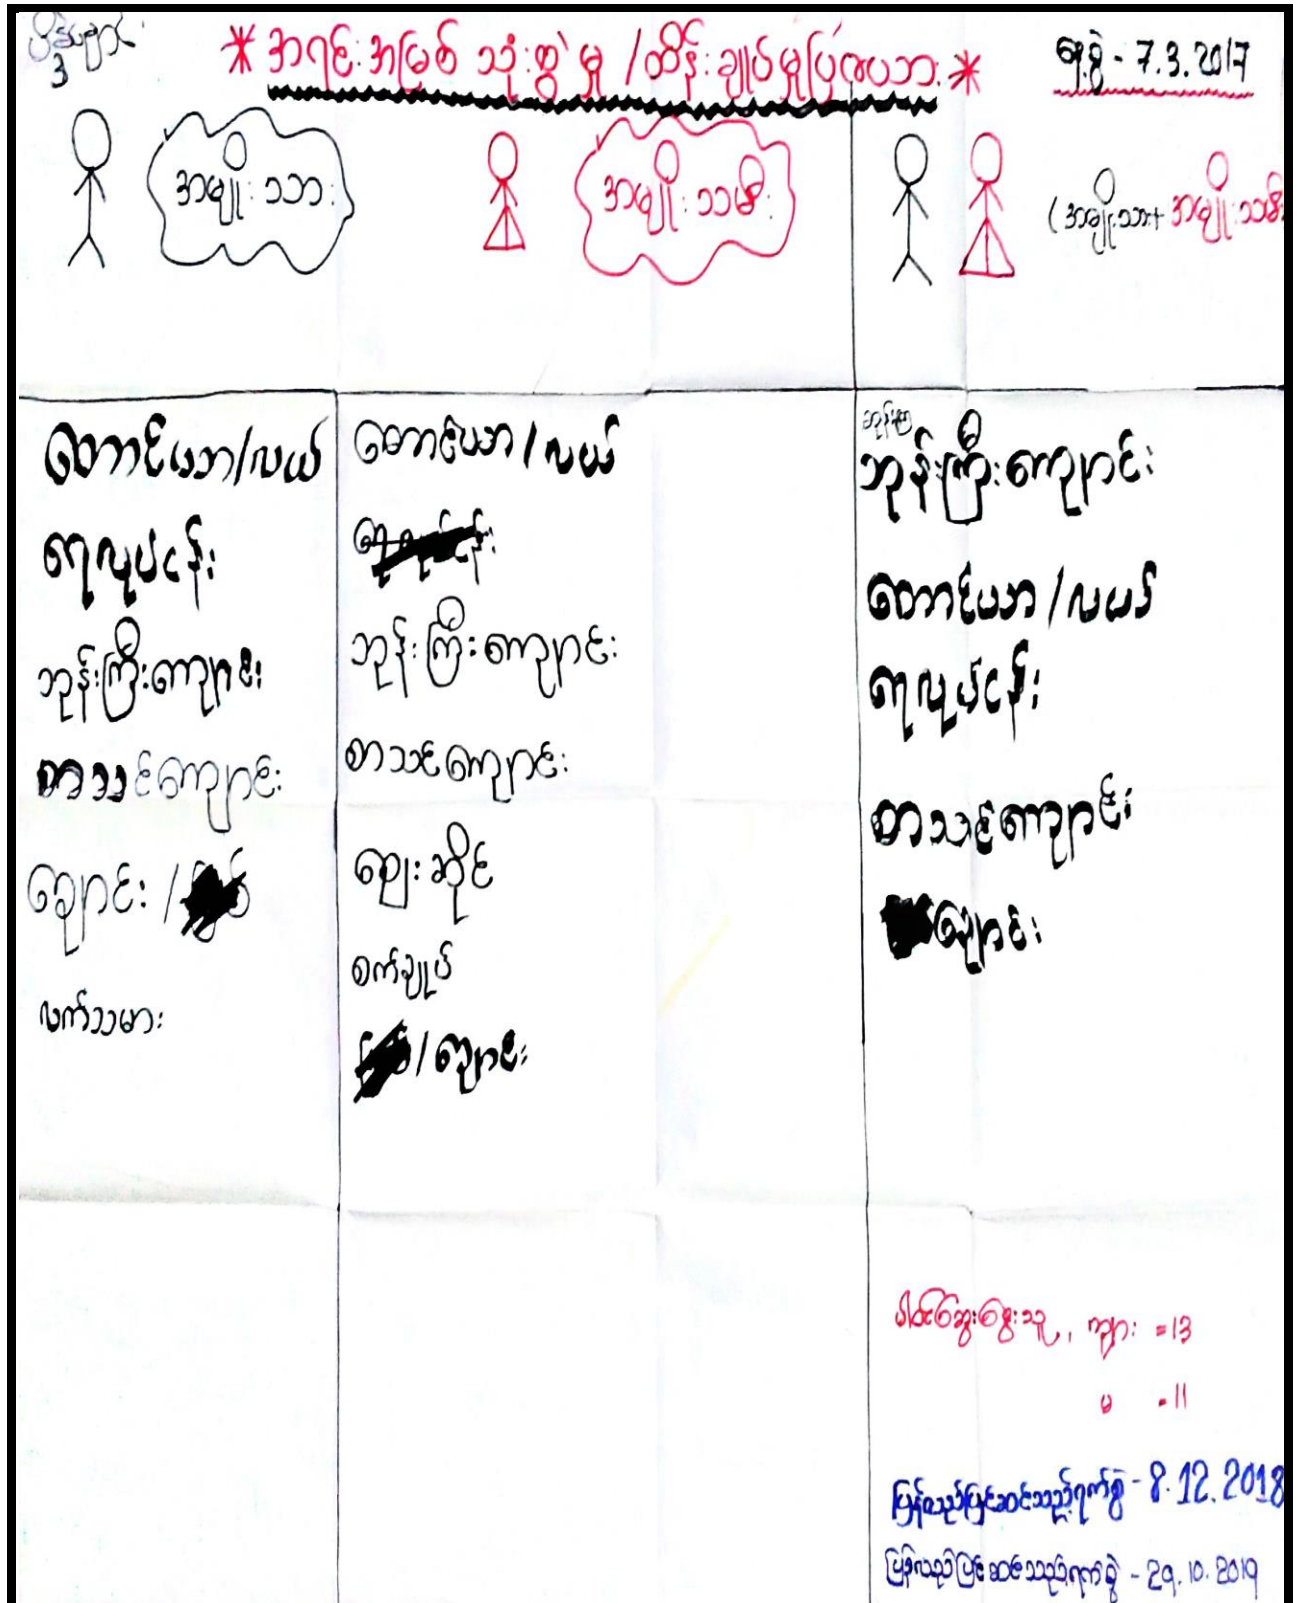 * အရင်းအမြစ် သုံးစွဲမှု / ထိန်းချုပ်မှုပြဇယား *
နေ့စွဲ - 7.3.2017
3
အမျိုးသား
အမျိုးသမီး
(အမျိုးသား + အမျိုးသမီး
တောင်ယာ/လယ်
ရေလုပ်ငန်း
ဘုန်းကြီးကျောင်း
စာသင်ကျောင်း
ချောင်း /
လက်သမား
တောင်ယာ / လယ်
ဘုန်းကြီးကျောင်း
စာသင်ကျောင်း
ဈေးဆိုင်
စက်ချုပ်
/ ချောင်း
ဘုန်းကြီးကျောင်း
တောင်ယာ / လယ်
ရေလုပ်ငန်း
စာသင်ကျောင်း
ချောင်း
ပါဝင်ဆွေးနွေးသူ ,, ကျား = 13
မ = 11
ပြန်လည်ပြင်ဆင်သည့်ရက်စွဲ - 8.12.2018
ပြန်လည်ပြင်ဆင်သည့်ရက်စွဲ - 29.10.2019